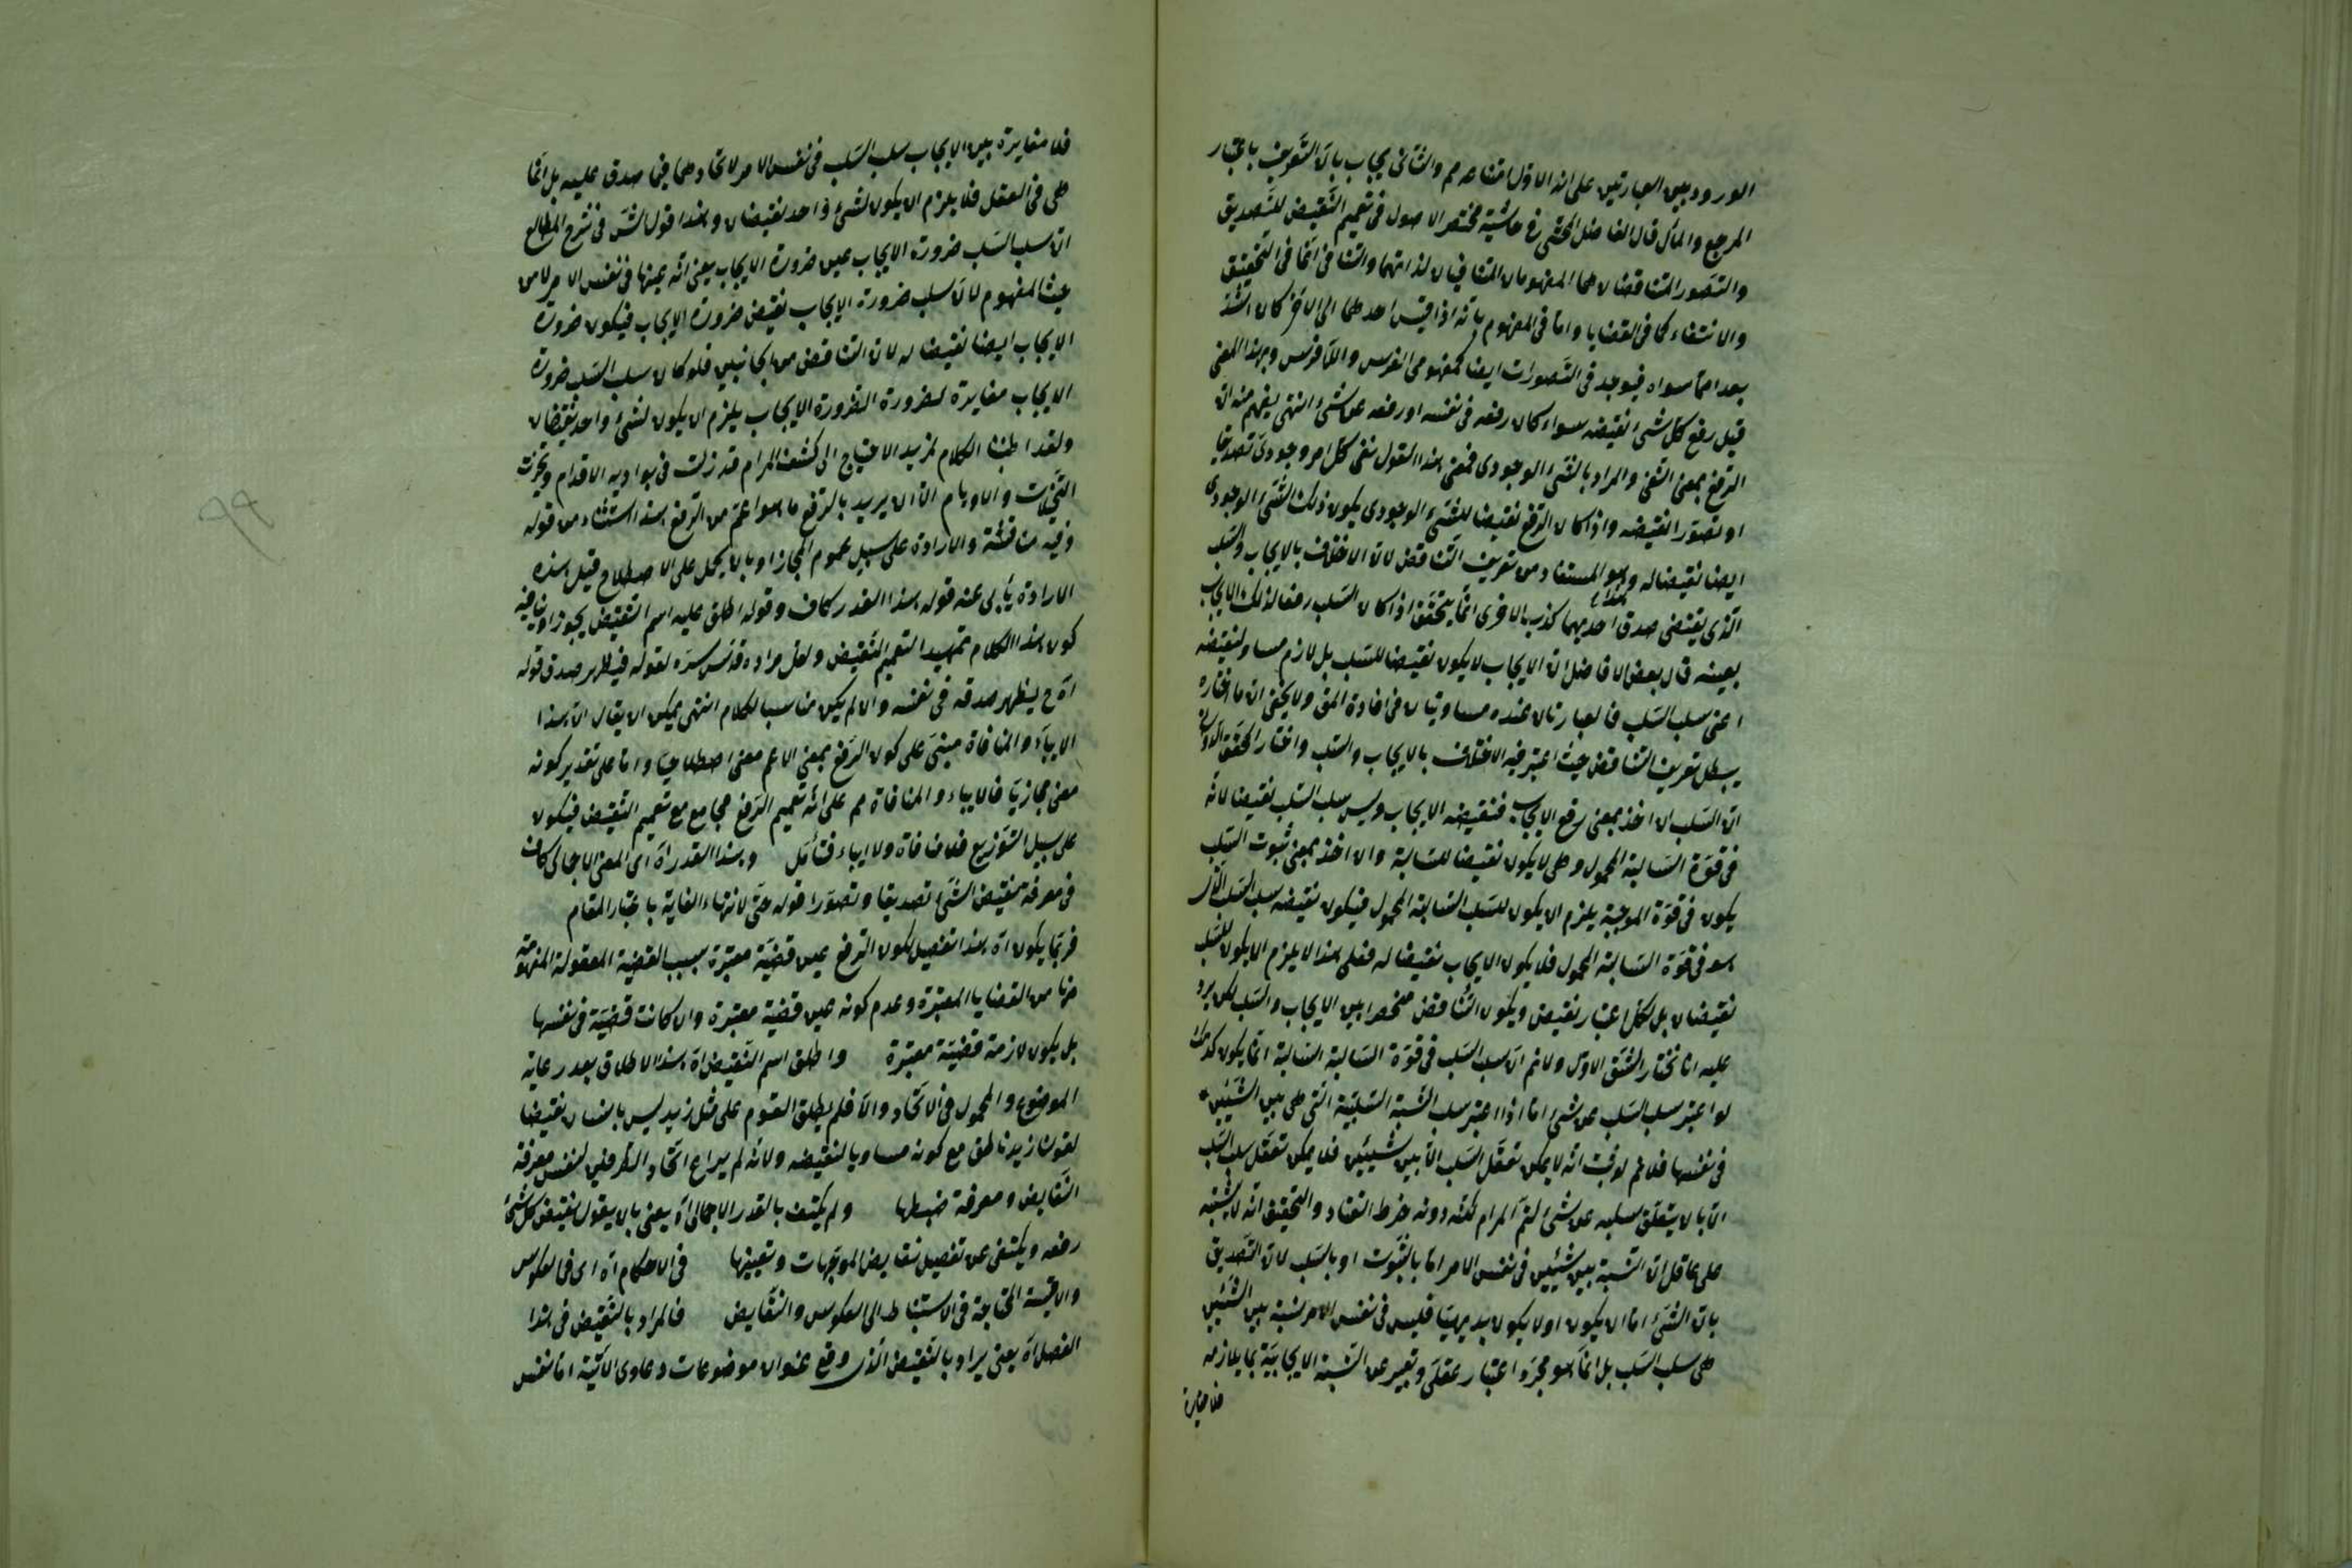 الورود بين العبارتين على ان الاول امتناعه مم والثانى يجاب بان التعريف باعتبار
المرجع والمآل قال الفاضل المحشى فى حاشية مختصر الاصول فى تعميم النقيض للتصديق
والتصور المتناقضان هما المفهومان المتنافيان لذاتهما والتنافى اما فى التحقق
والانتفاء كما فى القضايا واما فى المفهوم بانه اذا قيس احدهما الى الآخر كان اشد
بعدا مما سواه فيوجد فى التصورات ايضا كمفهومى الفرس واللافرس وبهذا المعنى
قيل رفع كل شئ نقيضه سواء كان رفعه فى نفسه او رفعه عن شئ انتهى يفهم منه ان
الرفع بمعنى النفى والمراد بالشئ الوجودى فمعنى هذا القول نفى كل امر وجودى تصديقا
او تصورا نقيضه واذا كان الرفع نقيضا للشئ الوجودى يكون ذلك الشئ الوجودى
ايضا نقيضا له وهو المستفاد من تعريف التناقض لان الاختلاف بالايجاب والسلب
الذى يقتضى صدق احديهما كذب الاخرى انما يتحقق اذا كان السلب رفعا لذلك الايجاب
بعينه قال بعض الافاضل ان الايجاب لا يكون نقيضا للسلب بل لازم مساو لنقيضه
اعنى سلب السلب فالعبارتان عنده مساويتان فى افادة المق ولا يخفى ان ما اختاره
يبطل تعريف التناقض حيث اعتبر فيه الاختلاف بالايجاب والسلب واختار المحقق الدوانى
ان السلب ان اخذ بمعنى رفع الايجاب فنقيضه الايجاب وليس سلب السلب نقيضا لانه
فى قوة السالبة المحمول وهى لا يكون نقيضا للسالبة وان اخذ بمعنى ثبوت السلب
يكون فى قوة الموجبة يلزم ان يكون للسلب السالبة المحمول فيكون نقيضه سلب السلب
هو فى قوة السالبة المحمول فلا يكون الايجاب نقيضا له فعلى هذا لا يلزم ان يكون للسلب
نقيضان بل لكل اعتبار نقيض ويكون التناقض منحصرا بين الايجاب والسلب لكن يرد
عليه انا نختار الشق الاول ولانم ان سلب السلب فى قوة السالبة السالبة انما يكون كذلك
لو اعتبر سلب السلب عن شئ اما اذا اعتبر سلب النسبة السلبية التى هى بين الشيئين
فى نفسها فلا نعم لو ثبت انه لا يمكن تعقل السلب الا بين شيئين فلا يمكن تعقل سلب السلب
الا بان لا يتعلق سلبه عن شئ لتم المرام لكنه دونه خرط القتاد والتحقيق انه لا يشتبه
على عاقل ان النسبة بين شيئين فى نفس الامر اما بالثبوت او بالسلب لان التصديق
بان الشئ اما ان يكون او لا يكون بديهيا فليس فى نفس الامر نسبة بين الشيئين
هى سلب السلب بل انما هو مجرد اعتبار عقلى وتعبير عن النسبة الايجابية بما يلازمه
فلا مغايرة
فلا مغايرة بين الايجاب سلب السلب فى نفس الامر لاتحادهما فيما صدق عليه بل انما
هى فى العقل فلا يلزم ان يكون لشئ واحد نقيضان وهذا قول الش فى شرح المطالع
ان سلب السلب ضرورة الايجاب عين ضرورة الايجاب يعنى انه عينها فى نفس الامر لا من
حيث المفهوم لان سلب ضرورة الايجاب نقيض ضرورة الايجاب فيكون ضرورة
الايجاب ايضا نقيضا له لان التناقض من الجانبين فلو كان سلب السلب ضرورة
الايجاب مغايرة لضرورة الضرورة الايجاب يلزم ان يكون لشئ واحد نقيضان
ولقد اطنبنا الكلام لمزيد الاحتياج الى كشف المرام قد زلت فى بواديه الاقدام وتحيرت
التخيلات والاوهام الا ان يريد بالرفع ما هو اعم من الرفع هذا استثناء من قوله
وفيه مناقشة والارادة على سبيل عموم المجاز او بان يحمل على الاصطلاح قيل هذه
الارادة يأبى عنه قوله هذا القدر كاف وقوله اطلق عليه اسم النقيض يجوزا وينافيه
كون هذا الكلام تمهيدا لتعميم النقيض ولعل مراده قدس سره لقوله فيظهر صدق قوله
آه ح ليظهر صدقه فى نفسه وان لم يكن مناسبا للكلام انتهى يمكن ان يقال ان هذا
الاباء والمنافاة مبنى على كون الرفع بمعنى الاعم معنى اصطلاحيا واما على تقدير كونه
معنى مجازيا فالاباء والمنافاة مم على انه تعميم الرفع مجامع مع تعميم النقيض فيكون
على سبيل التوزيع فلا منافاة ولا اباء فتأمل وهذا القدر آه اى المعنى الاجمالى كاف
فى معرفة نقيض الشئ تصديقا وتصورا قوله حتى لانتهاء الغاية باعتبار المقام
فربما يكون آه هذا تفصيل لكون الرفع عين قضية معتبرة بسبب القضية المعقولة المفهومة
منها من القضايا المعتبرة وعدم كونه عين قضية معتبرة وان كانت قضية فى نفسها
بل يكون لازمة قضية معتبرة واطلق اسم النقيض آه هذا الاطلاق بعد رعاية
الموضوع والمحمول فى الاتحاد والا فلم يطلق القوم على مثل زيد ليس بانسان نقيضا
لقولنا زيد ناطق مع كونه مساويا لنقيضه ولانه لم يراع اتحاد الطرفين لنفس معرفة
النقايض ومعرفة ضبطها ولم يكتف بالقدر الاجمالى آه يعنى بان يقول نقيض كل شئ
رفعه ويكتفى عن تفصيل نقايض الموجهات وتعيينها فى الاحكام آه اى فى العكوس
والاقيسة المحتاجة فى الاستنباط الى العكوس والنقايض فالمراد بالنقيض فى هذا
الفصل آه يعنى يراد بالنقيض الذى وقع عنوان موضوعات دعاوى الآتية اما نفس
99